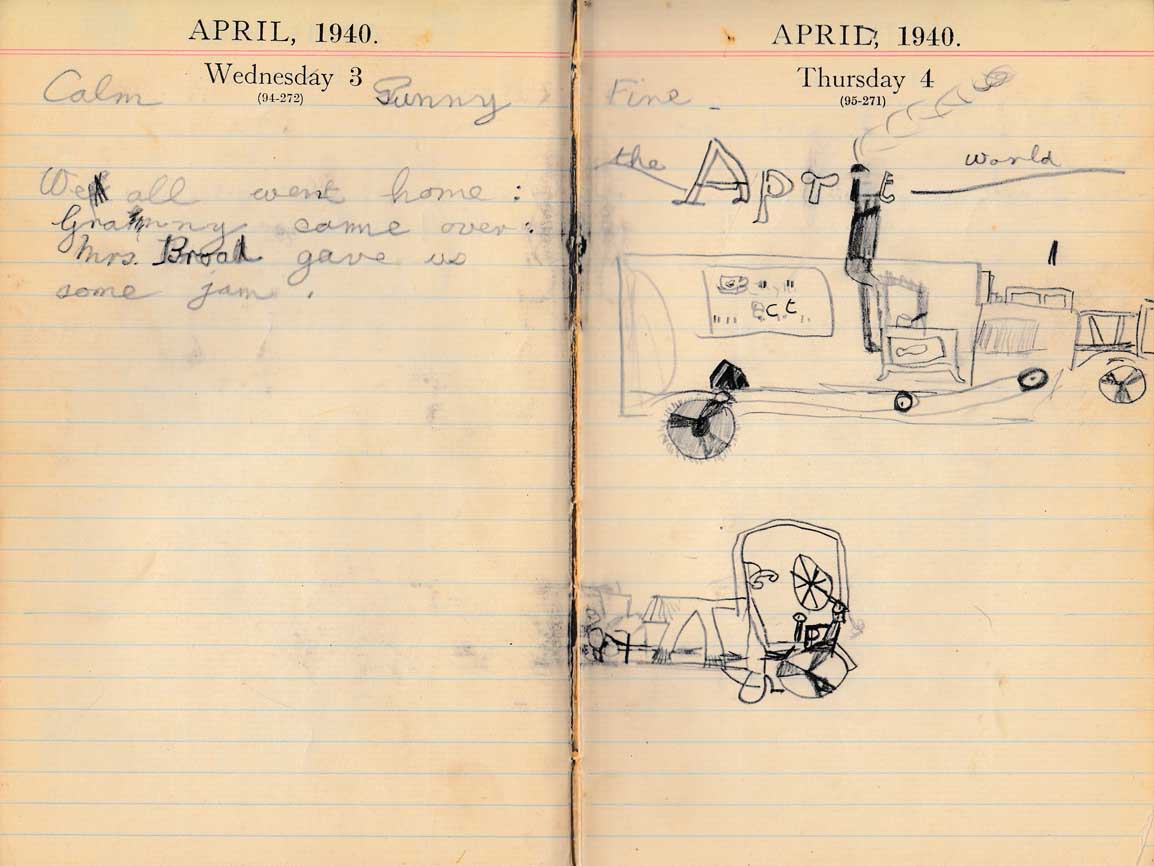 APRIL, 1940.
Wednesday 3
(94-272)
Calm Sunny
We all went home :
Grammy came over :
Mrs. Broad gave us
some jam .
APRIL, 1940.
Thursday 4
(95-271)
Fine
the
world